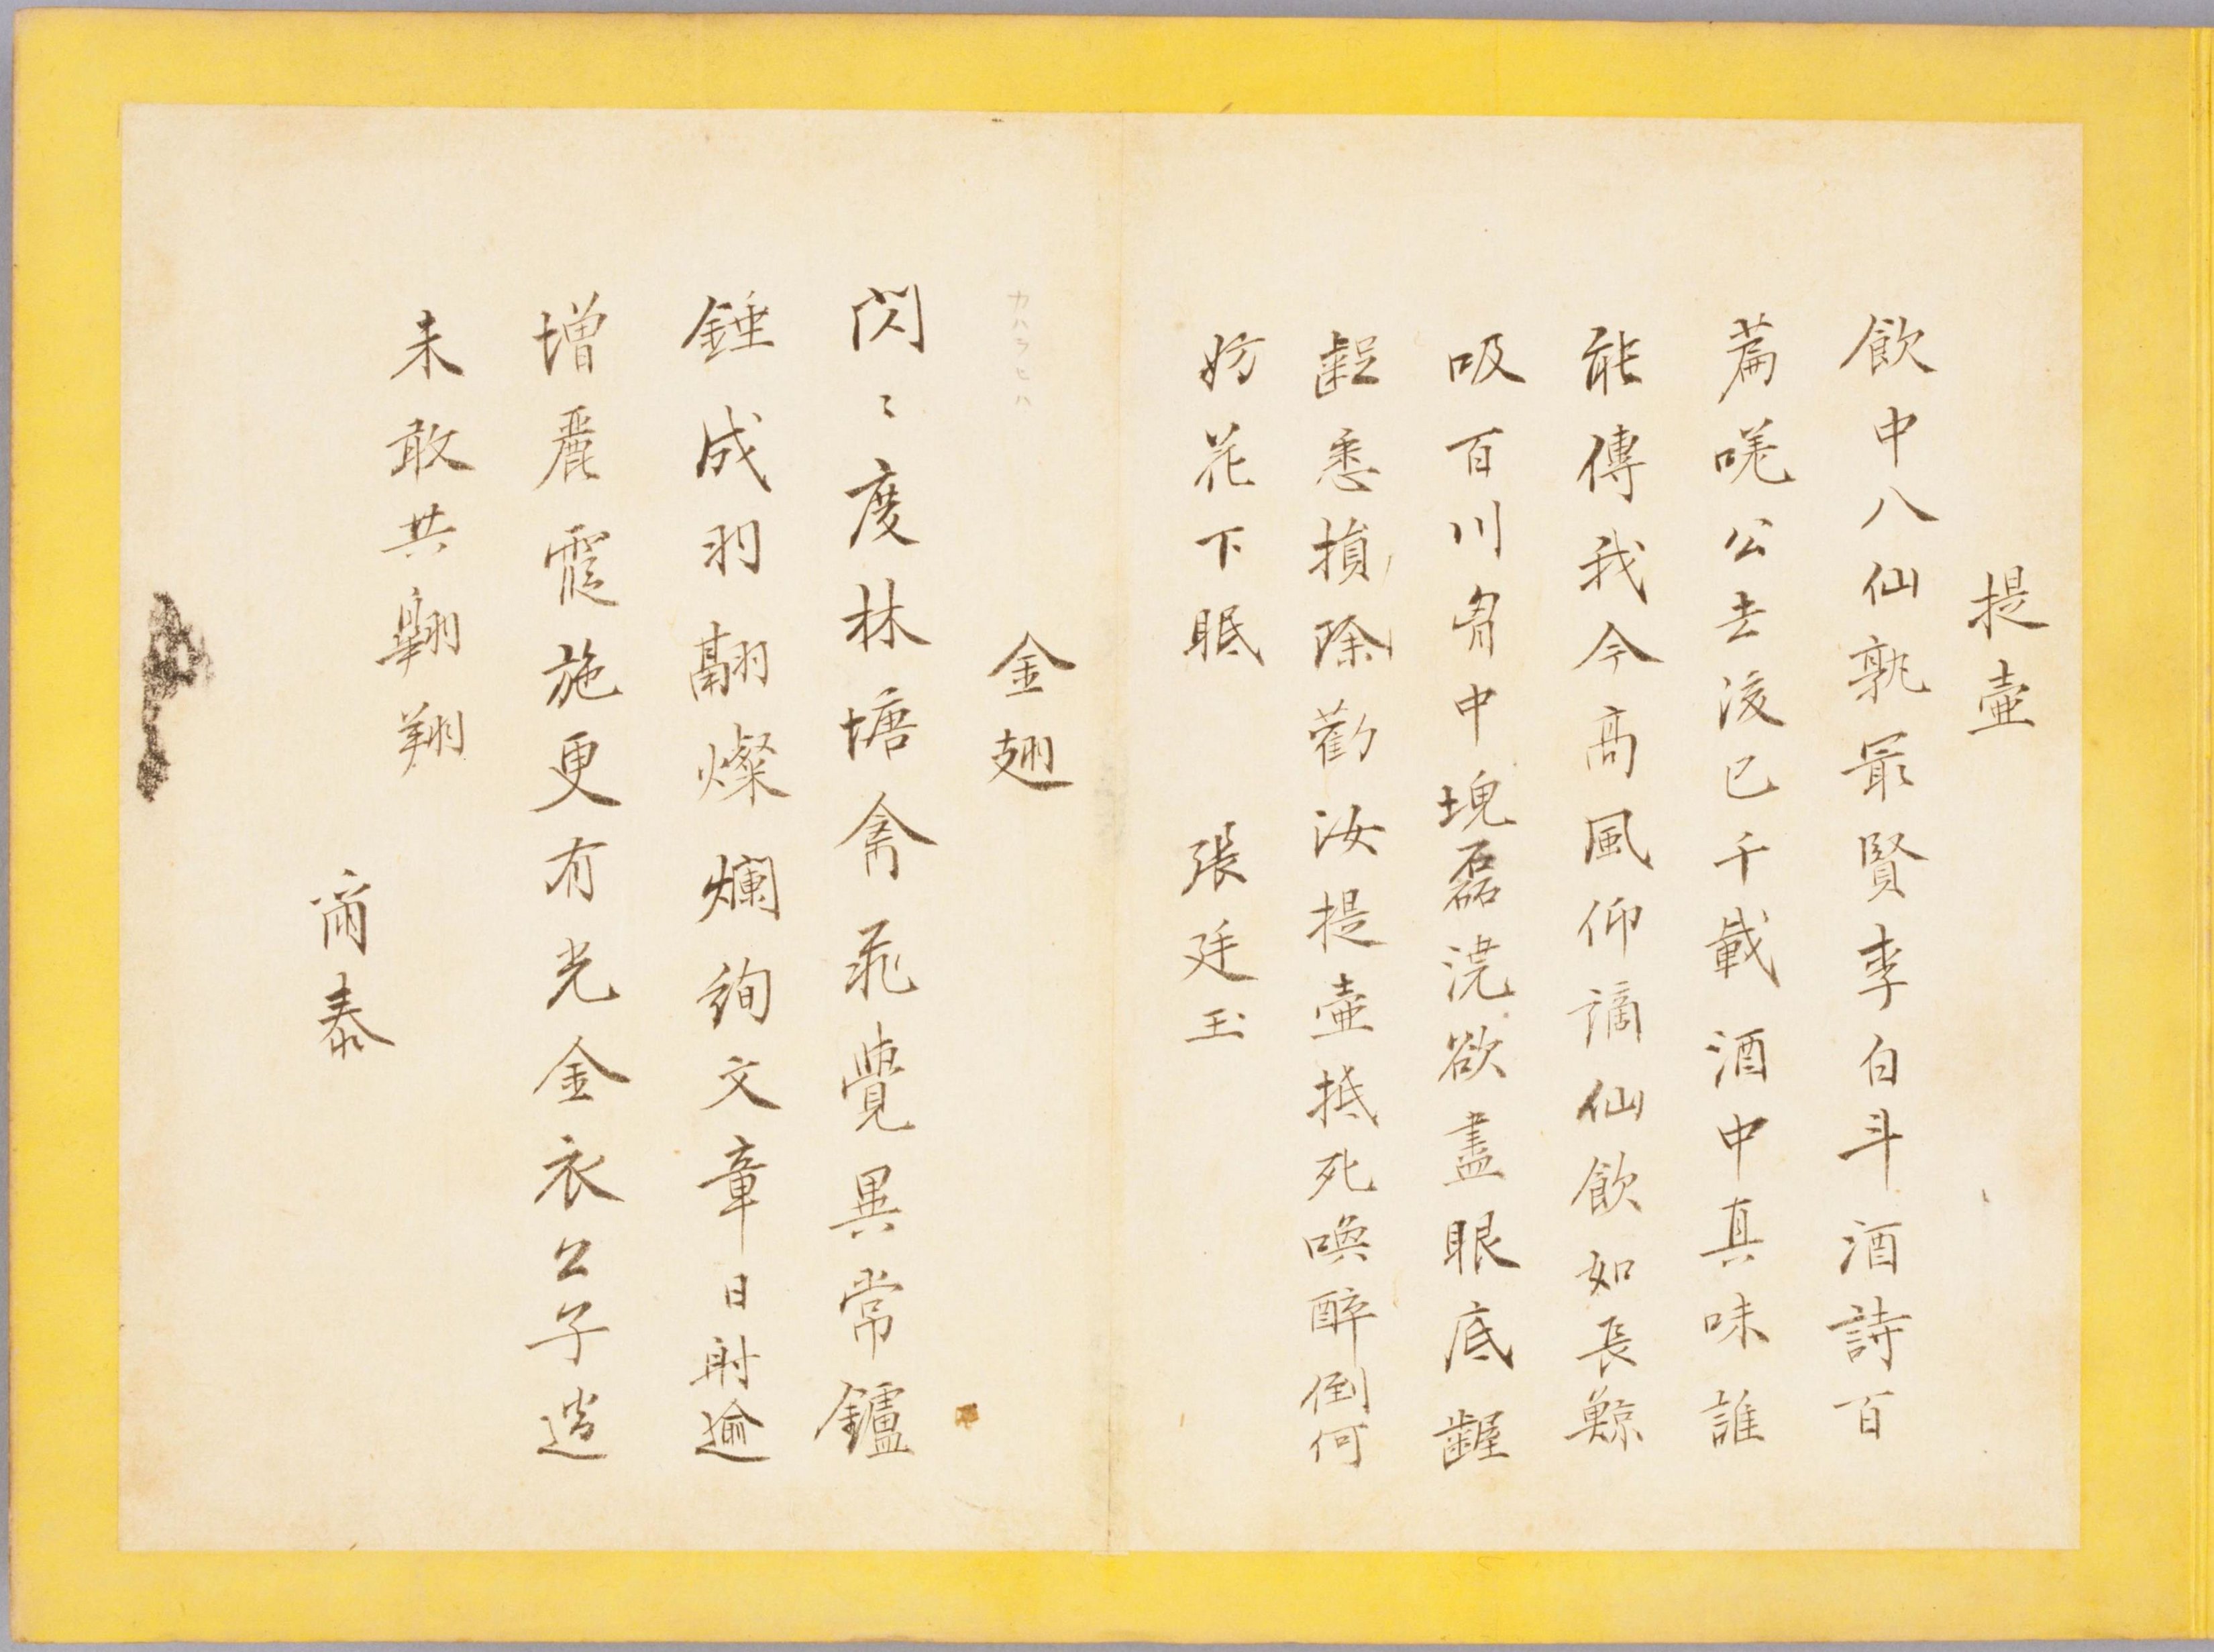 提壺
飲中八仙孰最賢李白斗酒詩百
篇嗟公去後已千載酒中真味誰
能傳我今高風仰謫仙飲如長鯨
吸百川胷中塊磊澆欲盡眼底齷
齪悉損除勸汝提壺抵死喚醉倒何
妨花下眠　張廷玉
金翅
カハラヒハ
閃〻度林塘禽飛覺異常鑪
錘成羽翮燦爛絢文章日射逾
增麗霞施更有光金衣公子遊
未敢共翱翔
爾泰